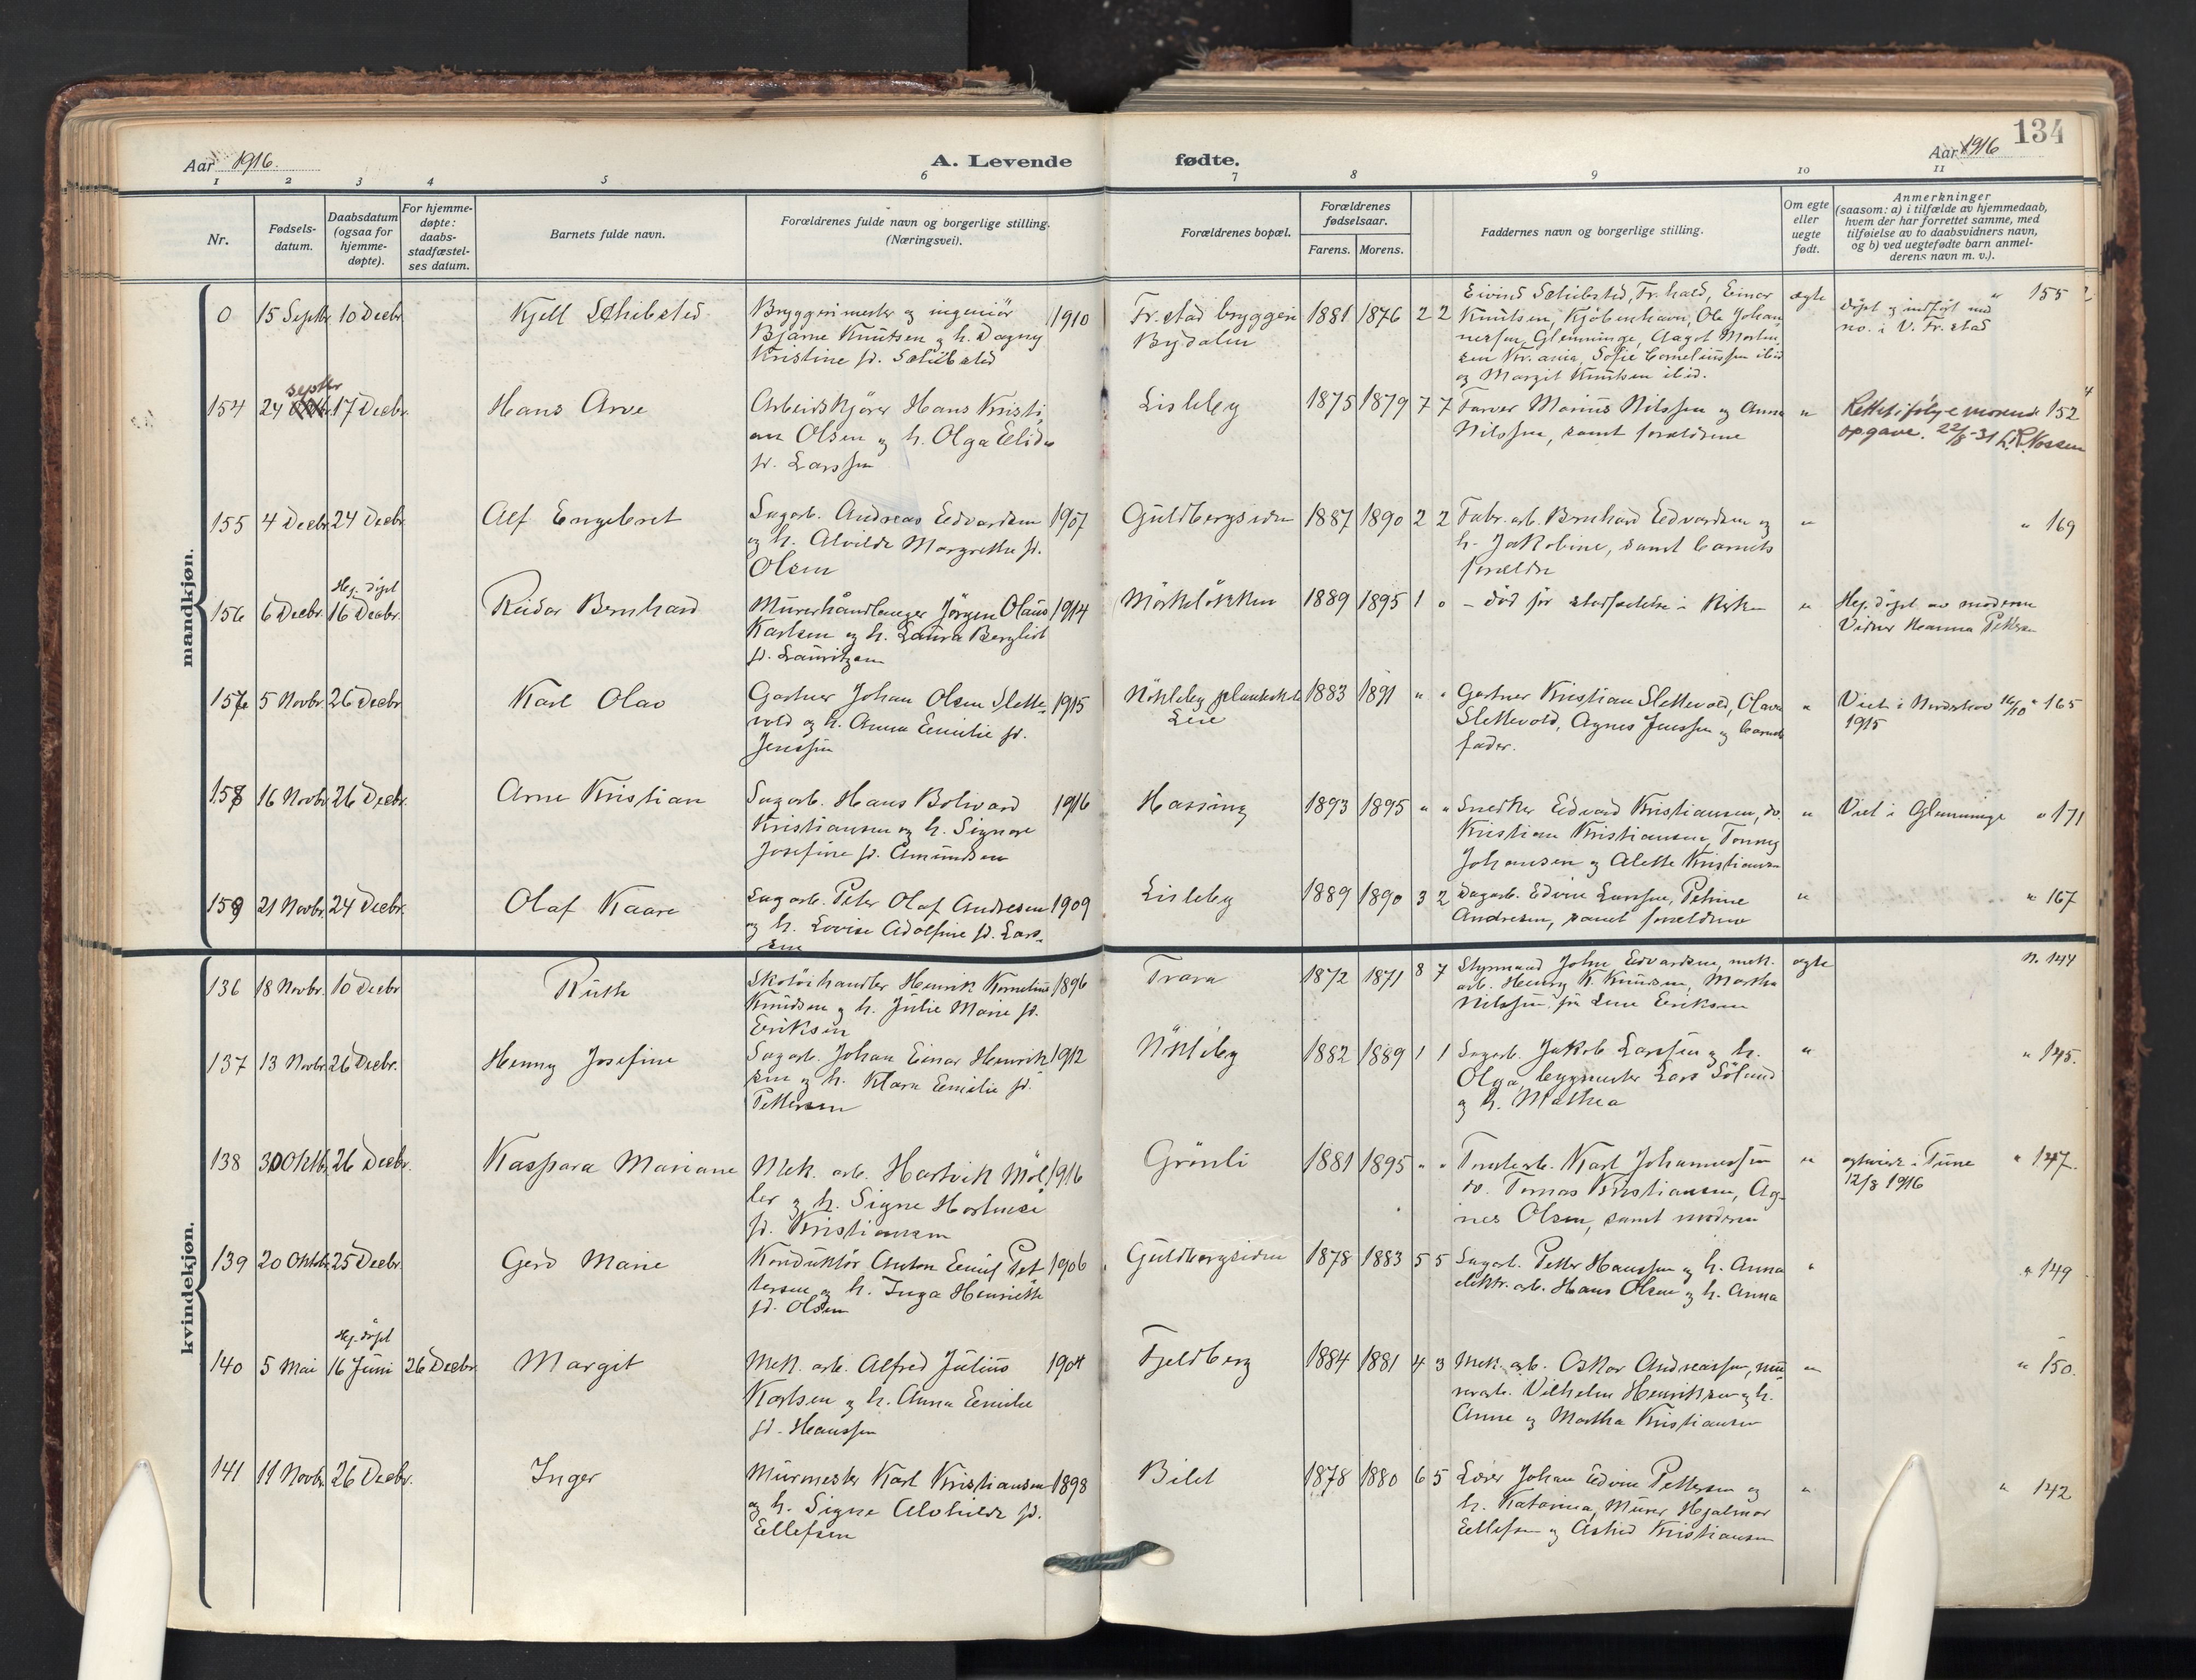 134
Aar 1916.
A. Levende
fødte.
Aar 1916
1 2 3 4 5 6 7 8 9 10 11
Nr.
Fødsels-
datum.
Daabsdatum
(ogsaa for
hjemme-
døpte).
For hjemme-
døpte:
daabs-
stadfæstel-
ses datum.
Barnets fulde navn.
Forældrenes fulde navn og borgerlige stilling.
(Næringsvei).
Forældrenes bopæl.
Forældrenes
fødselsaar.
Farens. Morens.
Faddernes navn og borgerlige stilling.
Om egte
eller
uegte
født.
Anmerkninger
(saasom: a) i tilfælde av hjemmedaab,
hvem der har forrettet samme, med
tilføielse av to daabsvidners navn,
og b) ved uegtefødte barn anmel-
derens navn m. v.).
mandkjøn.
0 15 Septbr. 10 Decbr. Kjell Schibsted
Bryggerimester og ingeniör 1910
Bjarne Knutsen og h. Dagny
Kristine f. Schibsted
Fr.stad bryggeri 1881 1876 2 2
Bydalen
Eivind Schibsted, Fr.hald, Einar
Knutsen, Kjöbenhavn, Ole Johan
nessen, Glemminge, Aagot Morten
sen Kr.ania, Sofie Corneliussen ibid
og Margit Knutsen ibid.
ægte
döpt og indført med " 155
no. i V. Fr.stad
Septbr
154 24 17 Decbr. Hans Arve
Arbeidskjører Hans Kristi
an Olsen og h. Olga Elida
f. Larssen
Lisleby 1875 1879 7 7
Farver Marius Nilssen og Anna
Nilssen, samt forældrene
" Rettet ifölge morens 152
opgave. 22/8-31
155 4 Decbr. 24 Decbr. Alf Engebret
Sagarb. Andreas Edvardsen 1907
og h. Alvilde Margrethe f.
Olsen
Guldbergsiden 1887 1890 2 2
Fabr.arb. Bernhard Edvardsen og
h. Jakobine, samt barnets
forældre
" " 169
Hj. döpt
156 6 Decbr. 16 Decbr. Reidar Bernhard
Murerhåndlanger Jörgen Olaus 1914
Karlsen og h. Laura Bergliot
f. Lauritzen
Mörkelökken 1889 1895 1 0
- död för stadfæstelse i Kirken
" Hj. döpt av moderen
Vidner Hanna Pettersen
157 5 Novbr. 26 Decbr. Karl Olav
Gartner Johan Olsen Slette- 1915
vold og h. Anna Emilie f.
Jenssen
Nökleby 1883 1891 " "
Leie
Gartner Kristian Slettevold, Olava
Slettevold, Agnes Jenssen og barnets
fader.
" Viet i 16/10 " 165
1915
158 16 Novbr. 26 Decbr. Arne Kristian
Sagarb. Hans Bolivard 1916
Kristiansen og h. Signora
Josefine f. Amundsen
Hassing 1893 1895 " "
Snedker Edvard Kristiansen, do.
Kristian Kristiansen, Tommy
Johansen og Alette Kristiansen
" Viet i Glemminge " 171
159 21 Novbr. 24 Decbr. Olaf Kaare
Sagarb. Peter Olaf Andresen 1909
og h. Lovise Adolfine f. Lars-
sen
Lisleby 1889 1890 3 2
Dagarb. Edvin Larssen, Petrine
Andresen, samt forældrene
" " 167
kvindekjøn.
136 18 Novbr. 10 Decbr. Ruth
Skotöihandler Henrik Kornelius 1896
Knudsen og h. Julie Marie f.
Eriksen
Trara 1872 1871 8 7
Styrmand John Edvardsen, mek.
arb. Henry K. Knudsen, Martha
Nilssen, frk Lene Eriksen
ægte n. 144
137 13 Novbr. 26 Decbr. Henny Josefine
Sagarb. Johan Einar Henrik 1912
sen og h. Klara Emilie f.
Pettersen
Nökleby 1882 1889 1 1
Sagarb. Jakob Larssen og h.
Olga, bygmester Lars Sölund
og h. Mathea
" " 145.
138 30 Oktb. 26 Decbr. Kaspara Mariane
Mek. arb. Hartvik Möl 1916
ler og h. Signe Hortensi
f. Kristiansen
Grönli 1881 1895 " "
Tomtearb. Karl Johannessen
do. Tomas Kristiansen, Ag-
nes Olsen, samt moderen
" egtviet i Tune " 147.
12/8 1916
139 20 Oktob. 25 Decbr. Gerd Marie
Konduktör Anton Emil Pet 1906
tersen og h. Inga Henriette
f. Olsen
Guldbergsiden 1878 1883 5 5
Sagarb. Petter Hanssen og h. Anna
elektr. arb. Hans Olsen og h. Anna
" " 149
Hj. döpt
140 5 Mai 16 Juni 26 Decbr. Margit
Mek. arb. Alfred Julius 1904
Karlsen og h. Anna Emilie
f. Hanssen
Fjeldberg 1884 1881 4 3
Mek. arb. Oskar Andreassen, mu
rerarb. Vilhelm Henriksen og h.
Anne og Martha Kristiansen
" " 150.
141 11 Novbr. 26 Decbr. Inger
Murmester Karl Kristiansen 1898
og h. Signe Alvhilde f.
Ellefsen
Bilet 1878 1880 6 5
Lærer Johan Edvin Pettersen og
h. Katarina, Murer Hjalmar
Ellefsen og Astrid Kristiansen
" " 142